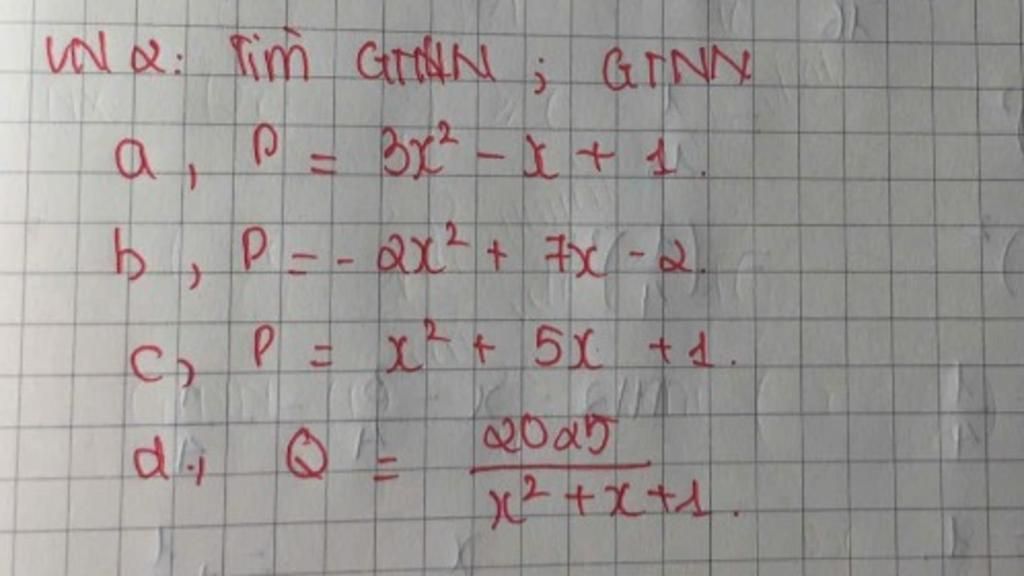 VN 2: Tìm GTNN ; GTNN
a, P = 3x² - x + 1.
b, P = - 2x² + 7x - 2.
c, P = x² + 5x + 1.
d, Q = 2025 / x² + x + 1.